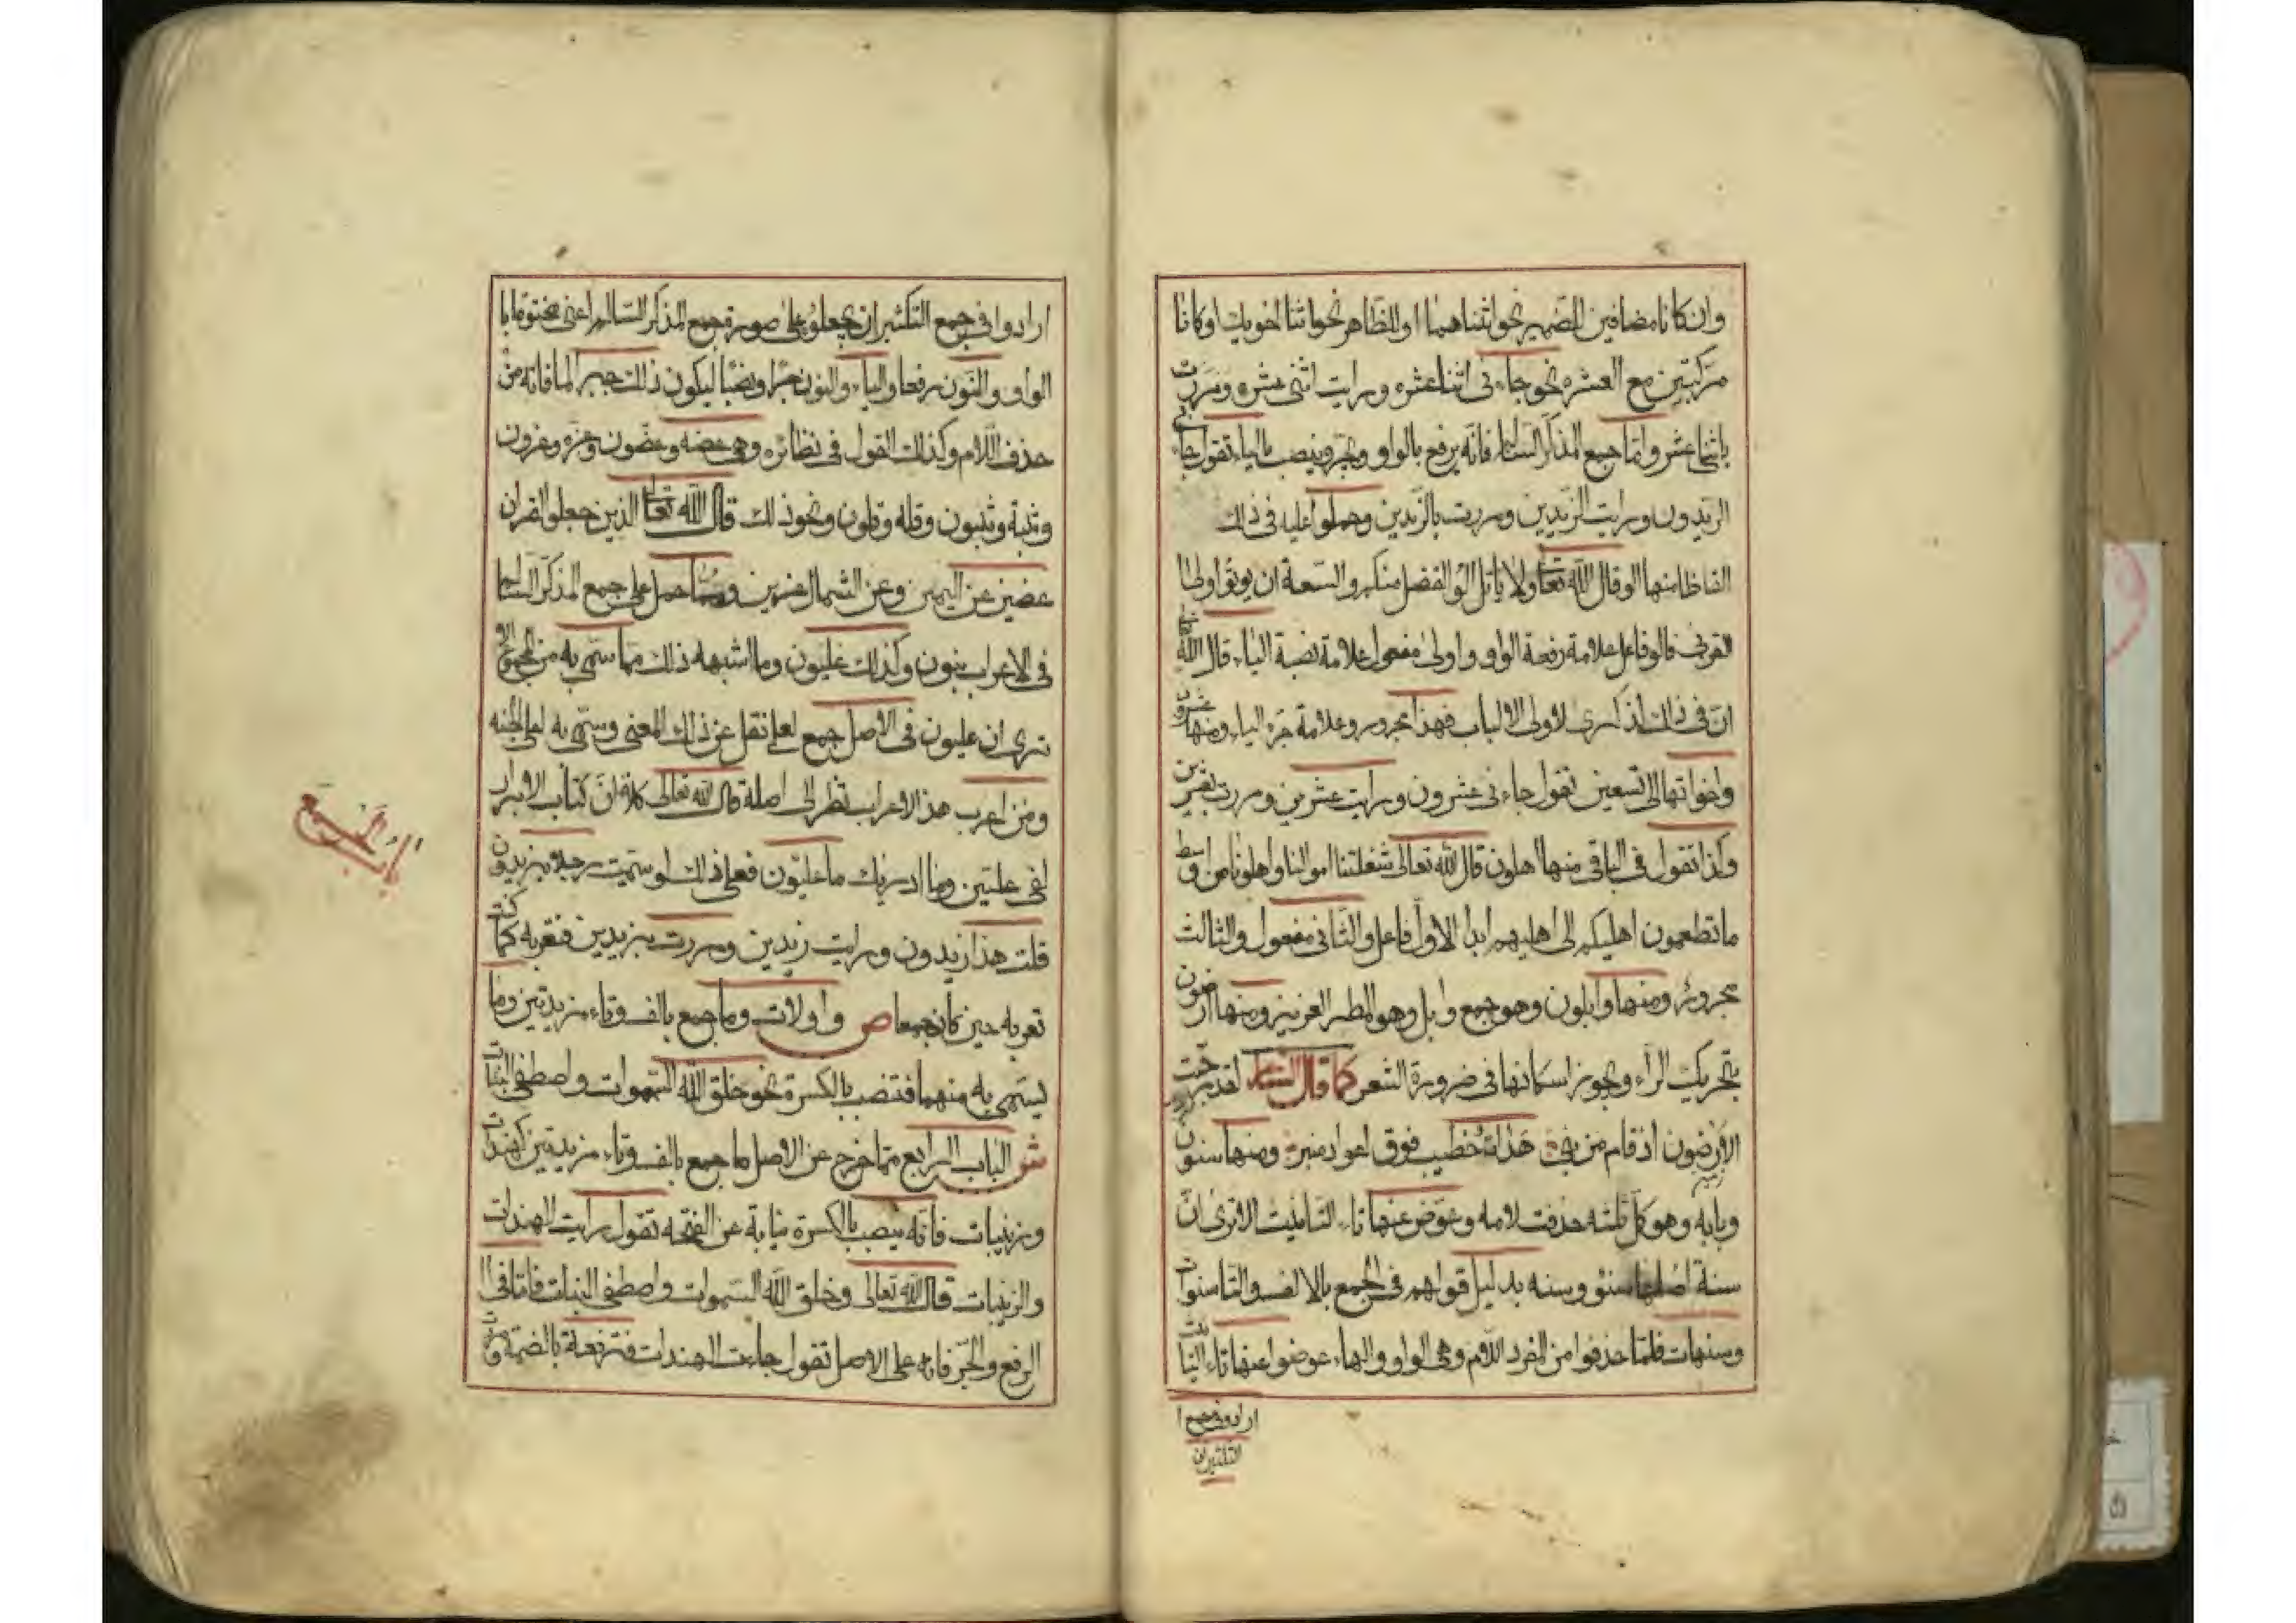 وان كانا مضافين للضمير نحو اثناهما او للظاهر نحو اثنا اخويك او كانا
مركبتين مع العشره نحو جاءنى اثنا عشره ورايت اثنى عشره ومررت
باثنا عشر واما جمع المذكر السالم فانه يرفع بالواو ويجر وينصب بالياء تقول جاءنى
الزيدون ورايت الزيدين ومررت بالزيدين وحملوا عليه فى ذلك
الفاظا منها الو قال الله تعا ولا ياتل الو الفضل منكم والسعة ان يوتوا اولى
القربى فالو فاعل علامة رفعة الواو واولى مفعول علامة نصبة الياء قال الله تعالى
ان فى ذلك لذكرى لاولى الالباب فهذا مجرور وعلامة جره الياء ومنها عشرون
واخواتها الى تسعين تقول جاءنى عشرون ورايت عشرين ومررت بعشرين
وكذا تقول فى الباقى منها اهلون قال الله تعالى شغلتنا اموالنا واهلونا من اوسط
ما تطعمون اهليكم الى اهليهم ابدا الاول فاعل والثانى مفعول والثالث
مجرور ومنها وابلون وهو جمع وابل وهو المطر الغزيز ومنها ارضون
بتحريك الراء ويجوز اسكانها فى ضرورة الشعر كما قال الشاعر لقد
الارضون اذ قام من بنى هذاد خطيب فوق اعواد منبر ومنها سنون
وبابه وهو كل ثلثه حذفت لامه وعوض عنها تاء التانيث الا ترى ان
سنة اصلها سنو وسنه بدليل قولهم فى الجمع بالالف والتا سنوات
وسنهات فلما حذفوا من المفرد اللام وهى الواو والهاء عوضوا عنها تاء التانيث
ارادوا فى جمع
التكثير ان
ارادوا فى جمع التكثير ان يجعلوه على صورة جمع المذكر السالم اعنى مختوما با
الواو والنون رفعا والياء والنون جرا ونصبا ليكون ذلك جبرا لما فاته من
حذف اللام وكذلك القول فى نظائره وهى عضه وعضون وعزه وعزون
وثبة وثبون وقله وقلون ونحو ذلك قال الله تعا الذين جعلوا القران
عضين عن اليمين وعن الشمال عزين ومما حمل على جمع المذكر السالم
فى الاعراب بنون وكذلك عليون وما اشبهه ذلك مما سمى به من الجموع الا
ترى ان عليون فى الاصل جمع لعلى نقل عن ذلك المعنى وسمى به اعلى الجنه
ومن اعرب هذا الاعراب نظر الى اصلة قال الله تعالى كلا ان كتاب الابرار
لفى عليين وما ادريك ما عليون فعلى ذلك لو سميت رجلا بزيدون
قلت هذا زيدون ورايت زيدين ومررت بزيدين فتعربه كما كنت
تعربه حين كان جمعا ص واولات وما جمع بالف وتاء مزيدتين وما
يسمى به منهما فتنصب بالكسرة نحو خلق الله السموات واصطفى البنات
شو الباب الرابع مما خرج عن الاصل ما جمع بالف وتاء مزيدتين كهندات
وزينبات فانه ينصب بالكسرة نيابة عن الفتحه تقول رايت الهندات
والزينبات قال الله تعالى وخلق الله السموات واصطفى البنات فاما فى ا
الرفع والجر فانه على الاصل تقول جاءت الهندات فترفعة بالضمة ومررت
الباب الرابع